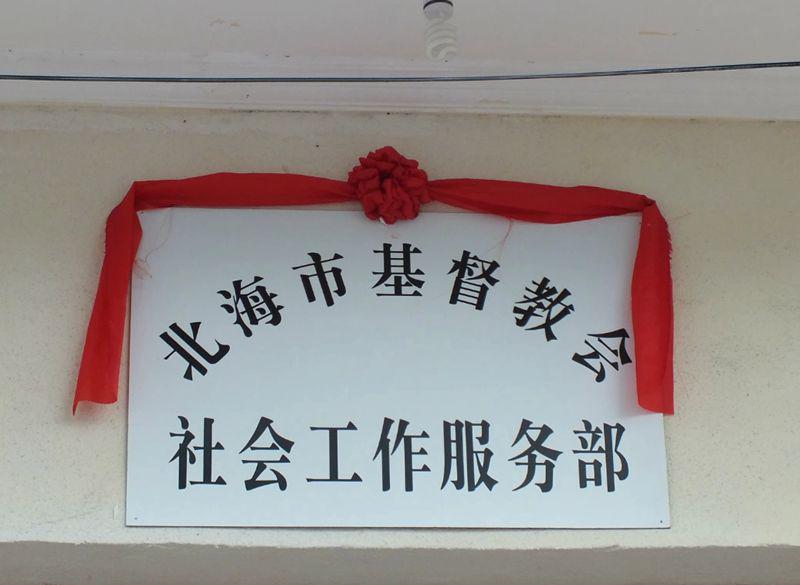 北海市基督教会
社会工作服务部